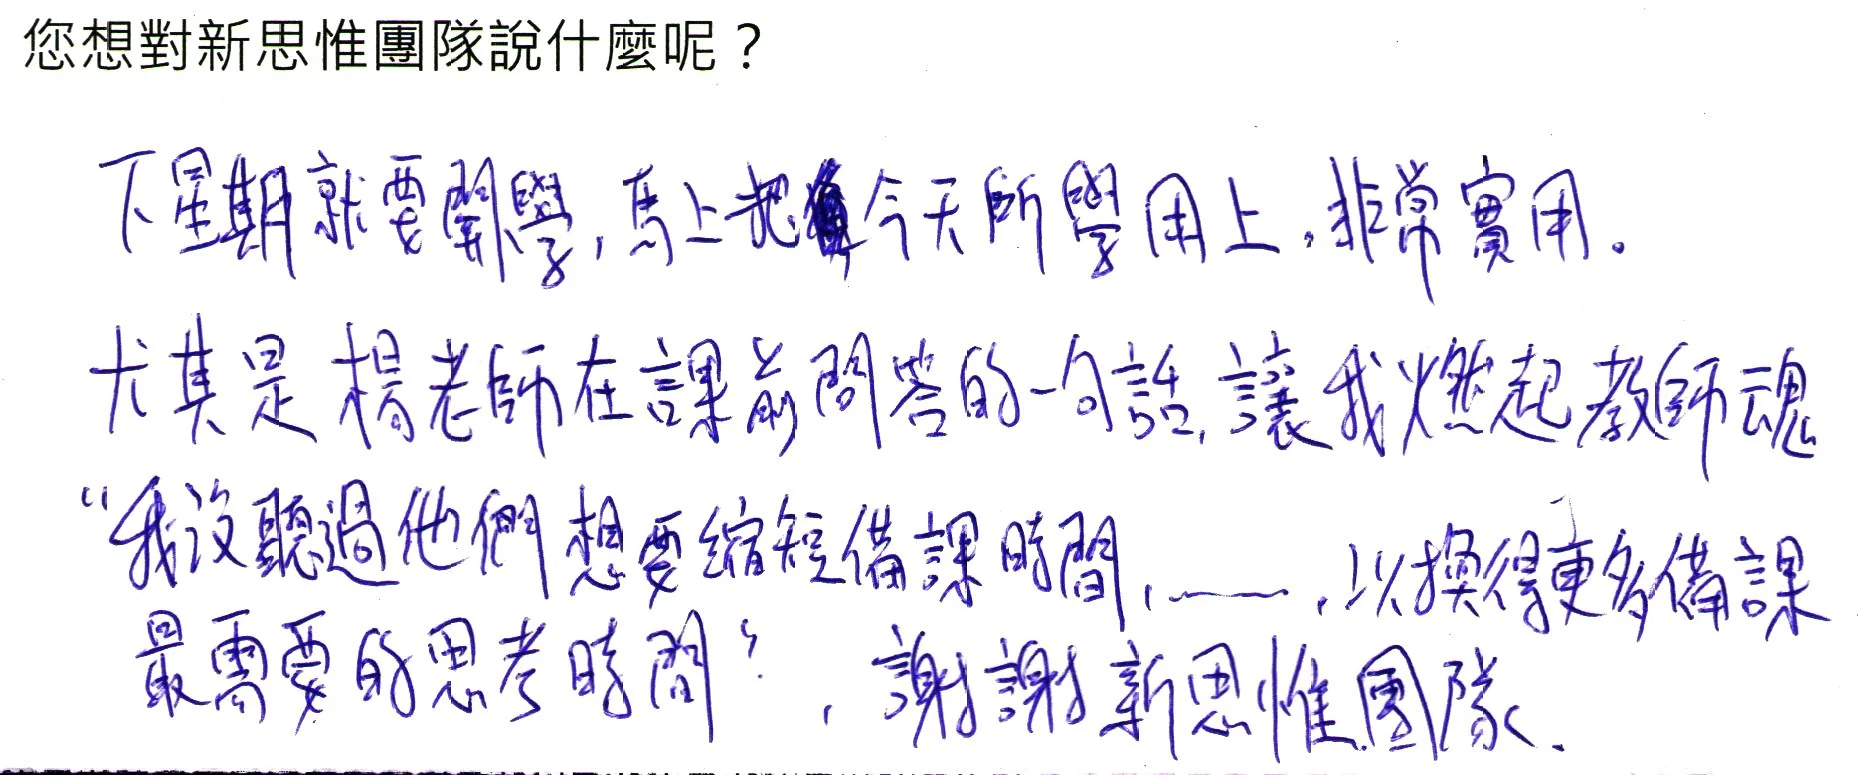 您想對新思惟團隊說什麼呢？
下星期就要開學，馬上把今天所學用上，非常實用。
尤其是楊老師在課前問答的一句話，讓我燃起教師魂
“我沒聽過他們想要縮短備課時間，——，以換得更多備課
最需要的思考時間”，謝謝新思惟團隊.